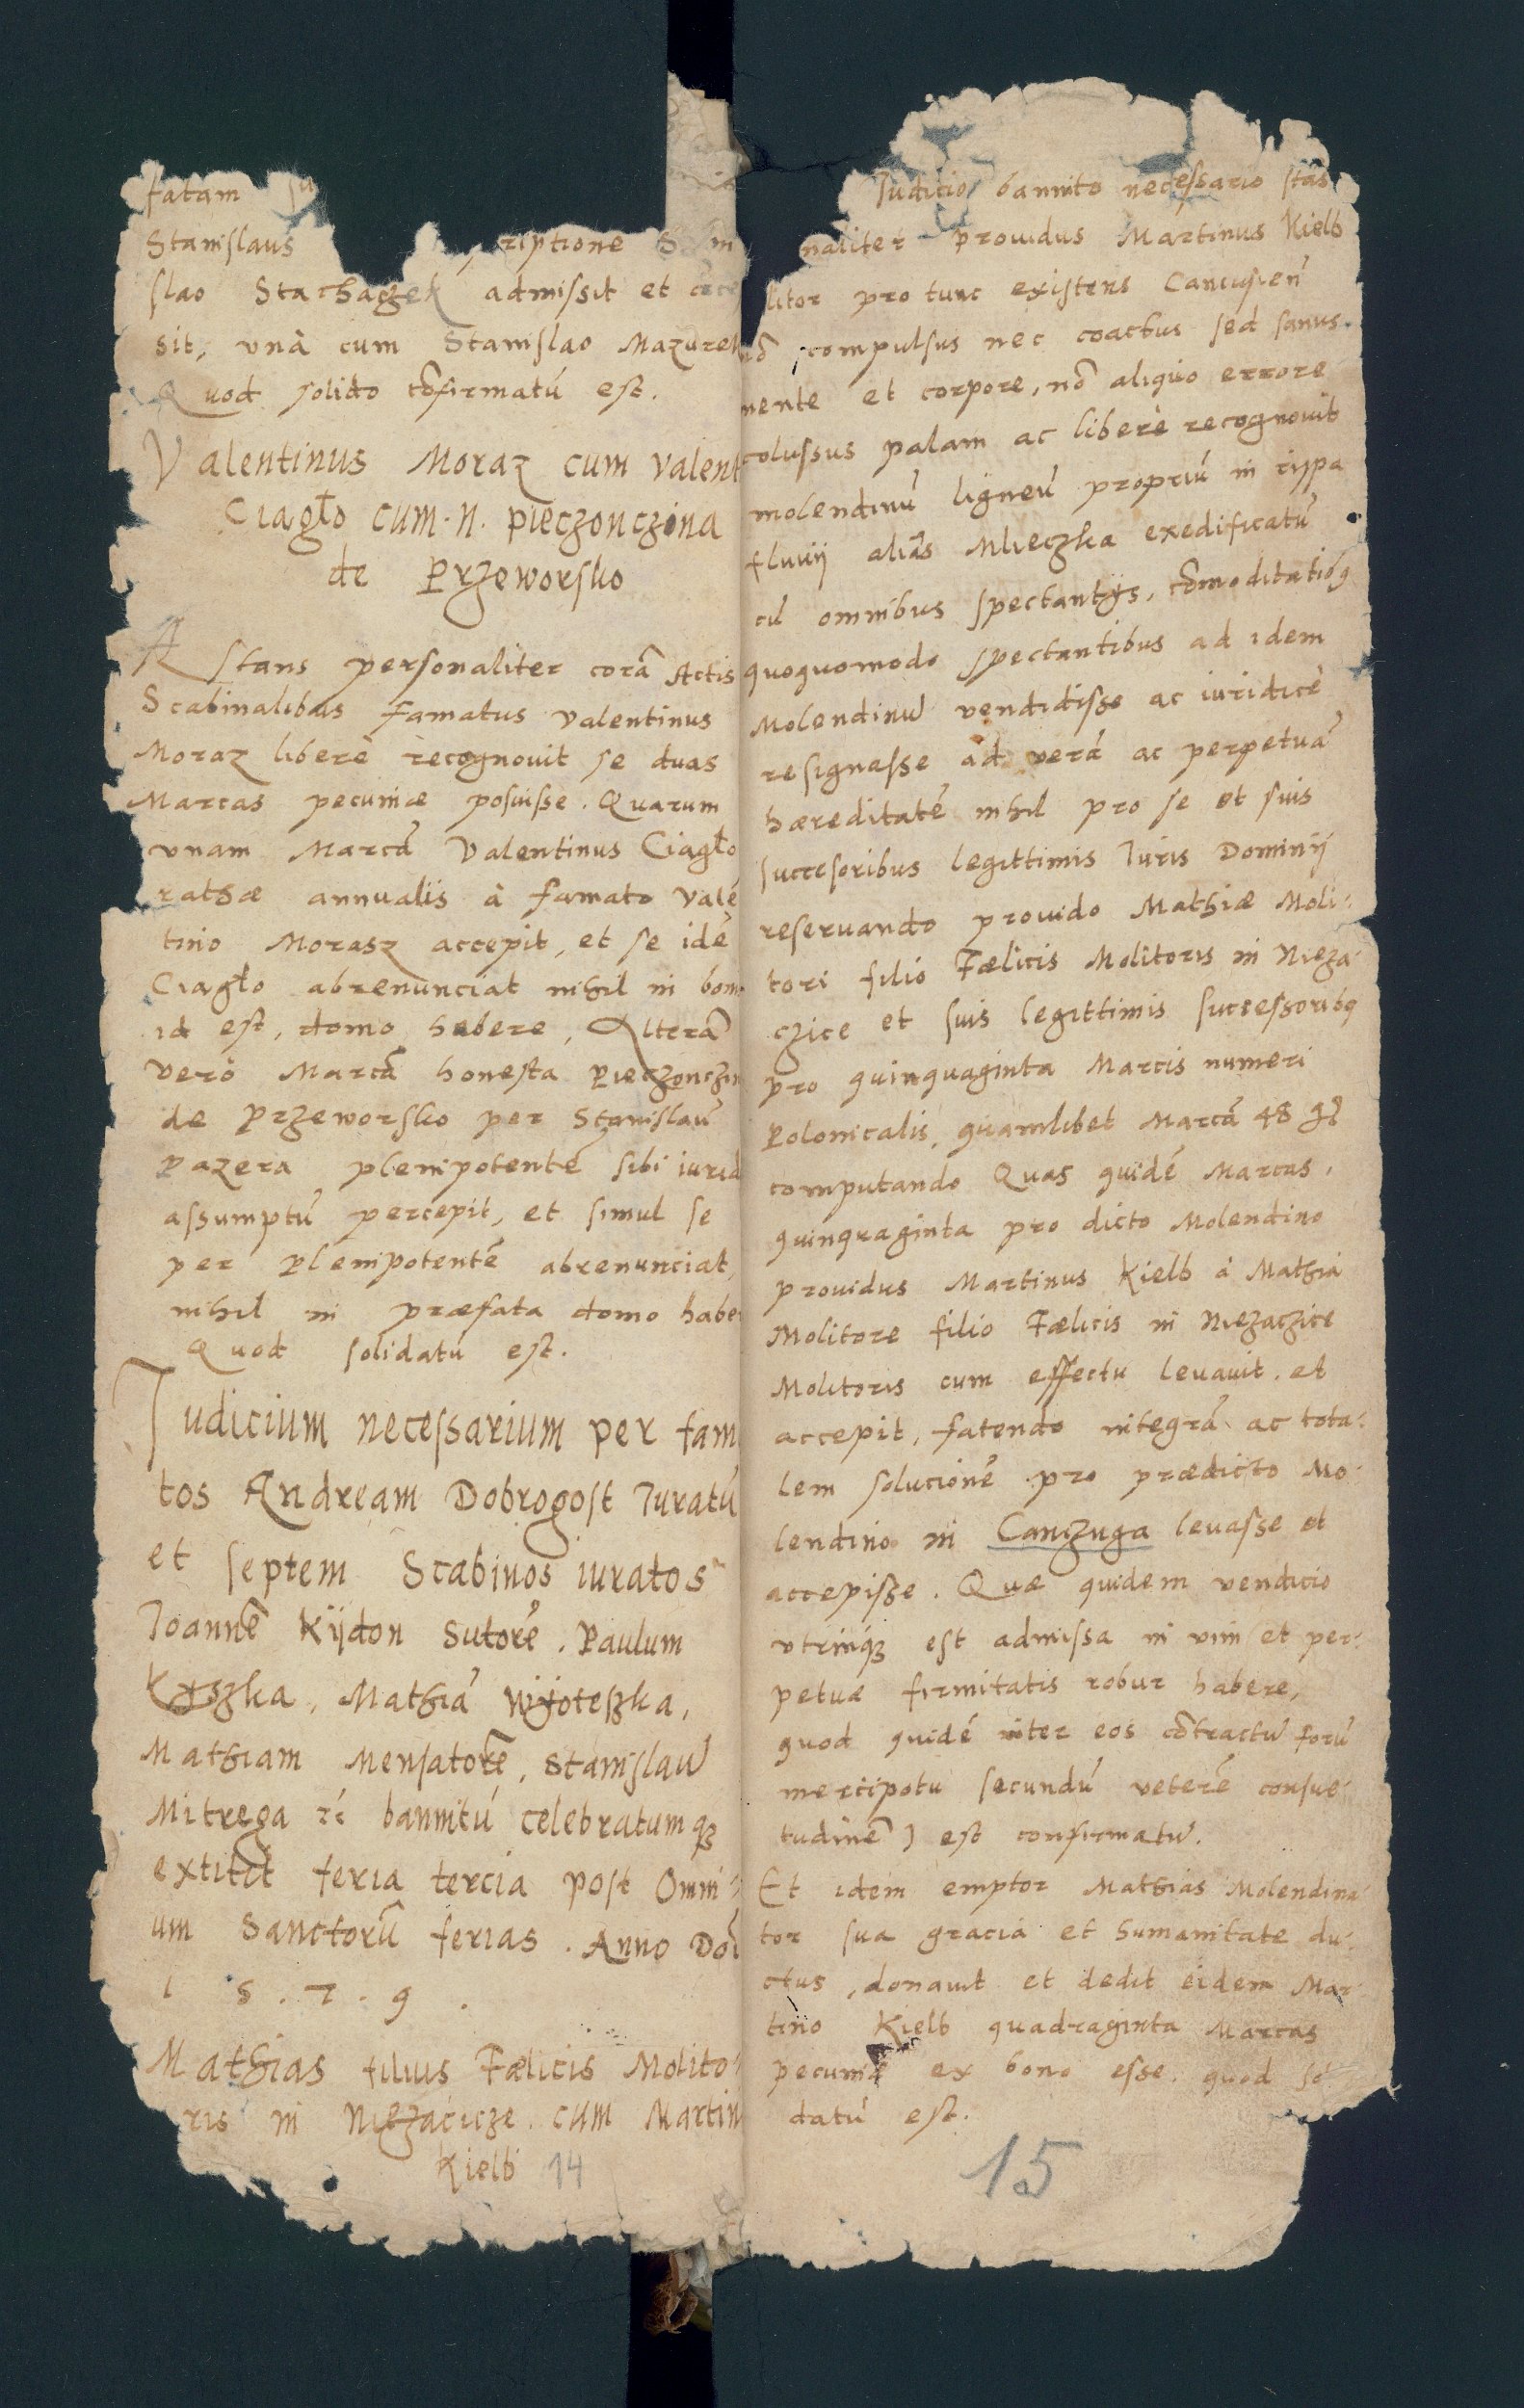 fatam su
Stanislaus riptione S m
slao Stachaczek admissit et
sit, vnà cum Stanislao Mazurek
Quod solido cōfirmatú est.
Valentinus Moraz cum valent
Ciagło cum. n. pieczonczina
de Przeworsko
Astans personaliter corā Actis
Scabinalibus famatus valentinus
Moraz liberè recognouit se duas
Marcas pecuniæ posuisse. Quarum
vnam Marcā Valentinus Ciagło
rathæ annualis à famato Valē
tino Morasz accepit, et se idē
Ciagło abrenunciat nihil in bon
id est, domo habere, Alterā
verò Marcā honesta Pieczonczin
de Przeworsko per Stanislaū
Pazera plenipotentē sibi iurid
assumptū percepit, et simul se
per Plenipotentē abrenunciat,
nihil in præfata domo habe
Quod solidatú est.
Judicium necessarium per fam
tos Andream Dobrogost Juratū
et septem Scabinos iuratos
Joannē Kÿdon Sutorē. Paulum
Kyszka, Mathiā Wÿoteszka,
Mathiam Mensatorē, Stanislaū
Mitrega rć bannitú celebratumqȝ
extitit feria tercia post Omni-
um Sanctorū ferias. Anno Doi
1 5 . 7 . 9 .
Mathias filius Fælicis Molito-
ris in Niezacicze. cum Martin
Kielb 14
Judicio bannito necessario stās
naliter prouidus Martinus Kielb
litor pro tunc existens Cancusieñ
nō compulsus nec coactus sed sanus.
mente et corpore, nō aliquo errore
colussus palam ac liberè recognouit
molendinū ligneū propriū in rippa
fluvij aliàs Mlieczka exedificatū
cū omnibus spectantÿs, cōmoditatibꝫ
quoquomodo spectantibus ad idem
Molendinū vendidisse ac iuridicè
resignasse ad verā ac perpetuā
hæreditatē nihil pro se et suis
succesoribus legittimis Juris Dominÿ
reseruando prouido Mathiæ Moli-
tori filio Fælicis Molitoris in Nieza-
czice et suis legittimis successoribꝫ
pro quinquaginta Marcis numeri
Polonicalis, quamlibet Marcā 48 gł
computando Quas quidē Marcas,
quinqraginta pro dicto Molendino
prouidus Martinus Kielb à Mathià
Molitore filio Fælicis in Niezaczice
Molitoris cum effectu leuauit. et
accepit, fatendo integrā ac tota-
lem solucionē pro prædicto Mo-
lendino in Canczuga leuasse et
accepisse. Quæ quidem vendicio
vtrinqȝ est admissa in vim et per-
petuæ firmitatis robur habere,
quod quidē inter eos cōtractū forū
mercipotu secundū veterē consue-
tudinē) est confirmatū.
Et idem emptor Mathias Molendina-
tor sua gracia et humanitate du-
ctus, donauit et dedit eidem Mar-
tino Kielb quadraginta Marcas
pecuniæ ex bono esse. quod so
datū est.
15